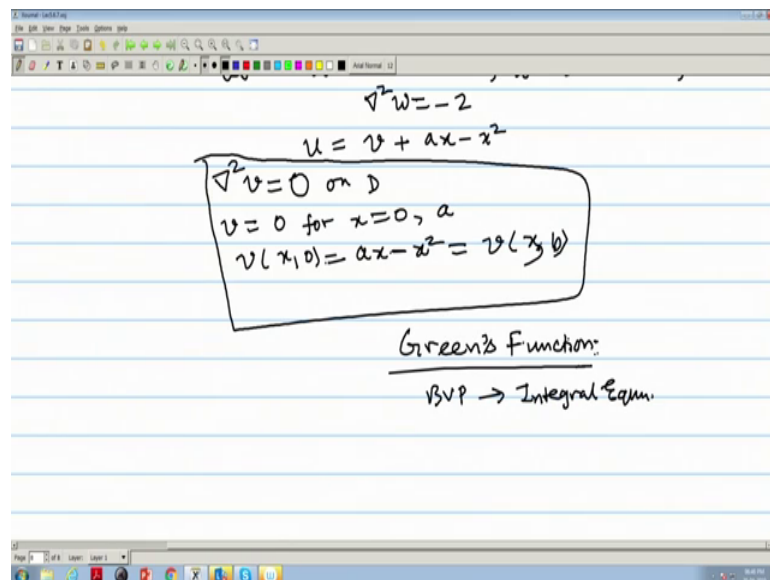 Journal - Lec5.6.7.xoj
File Edit View Page Tools Options Help
Arial Normal 12
∇²w = -2
u = v + ax - x²
∇²v = 0 on D
v = 0 for x = 0, a
v(x, 0) = ax - x² = v(x, b)
Green's Function:
BVP → Integral Equn.
Page 8 of 8 Layer: Layer 1